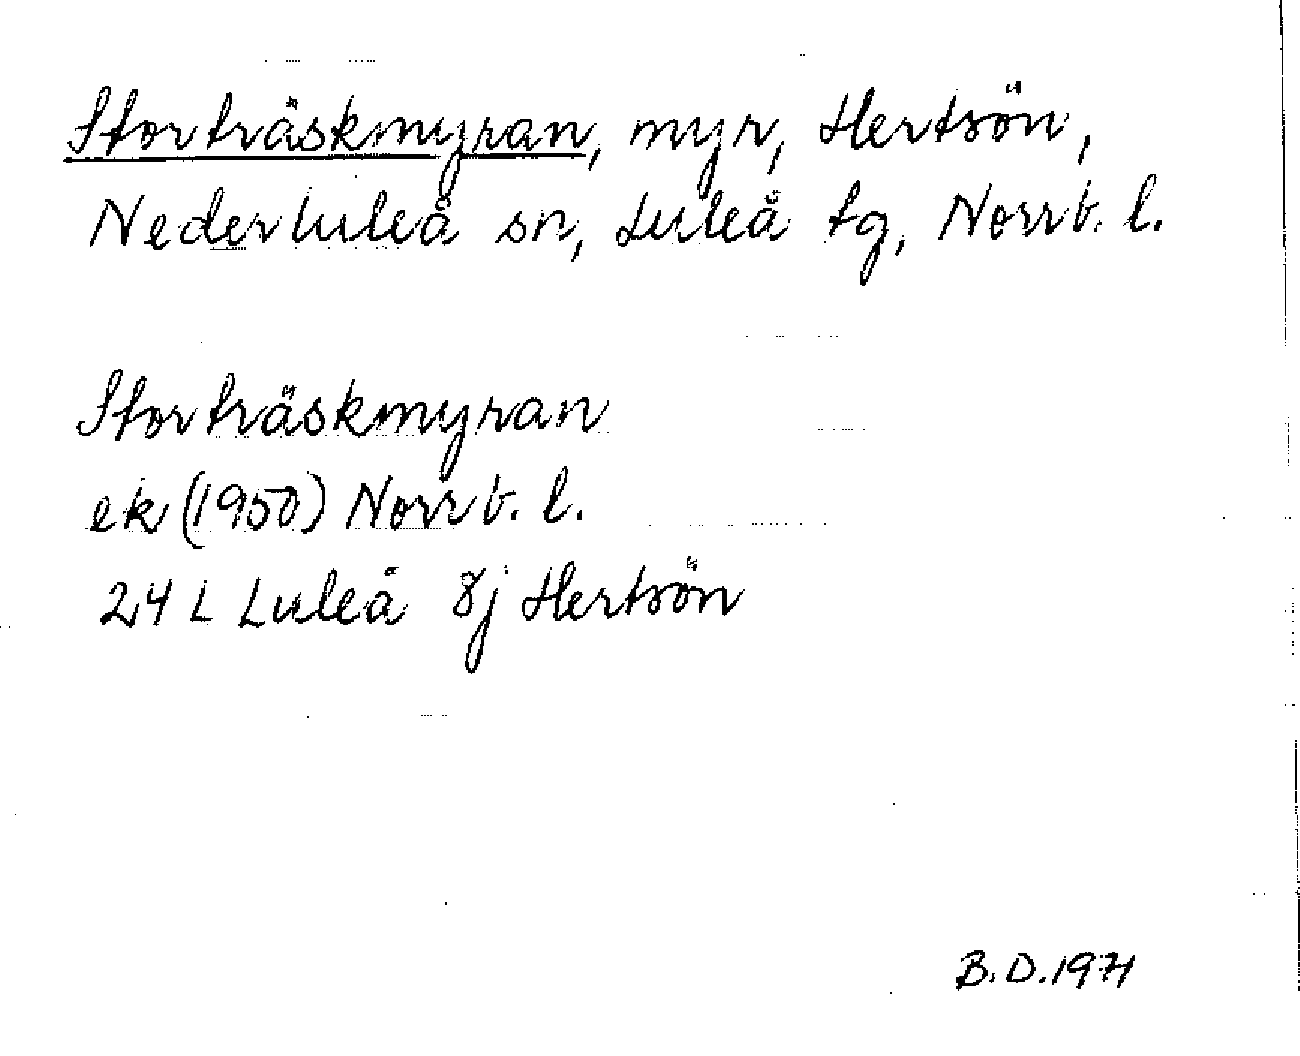 Storträskmyran, myr, Hertsön,
Nederluleå sn, Luleå tg, Norrb. l.
Storträskmyran
ek (1950) Norrb. l.
24 L Luleå 8j Hertsön
B.D.1971